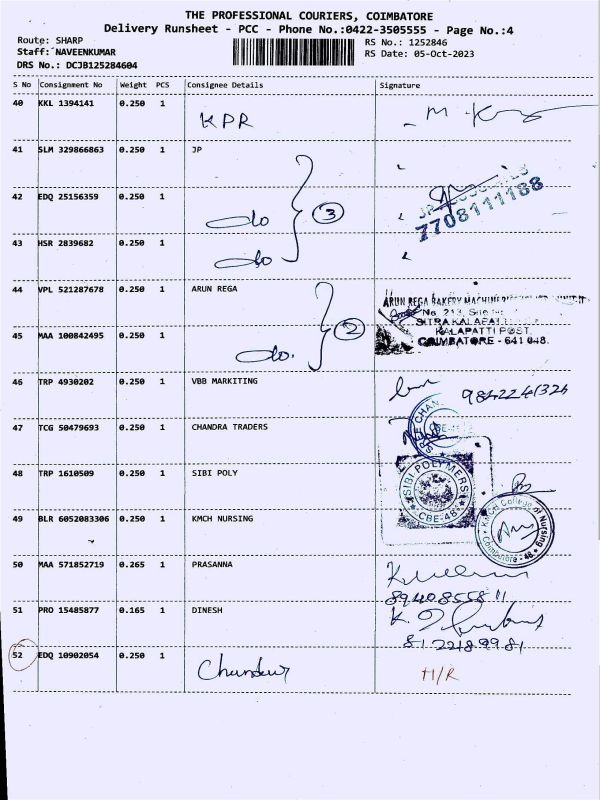 THE PROFESSIONAL COURIERS, COIMBATORE
Delivery Runsheet - PCC - Phone No.:0422-3505555 - Page No.:4
Route: SHARP
Staff: NAVEENKUMAR
DRS No.: DCJB125284604
RS No.: 1252846
RS Date: 05-Oct-2023
S No Consignment No Weight PCS Consignee Details Signature
40 KKL 1394141 0.250 1 KPR
41 SLM 329866863 0.250 1 JP
42 EDQ 25156359 0.250 1 do
7708111188
43 HSR 2839682 0.250 1 do
3
44 VPL 521287678 0.250 1 ARUN REGA
ARUN REGA BAKERY
No. 213,
SITRA KALAPATTI
KALAPATTI POST,
COIMBATORE - 641 048.
45 MAA 100842495 0.250 1 do.
2
46 TRP 4930202 0.250 1 VBB MARKITING
47 TCG 50479693 0.250 1 CHANDRA TRADERS
48 TRP 1610509 0.250 1 SIBI POLY
SIBI POLYMERS
CBE-48
49 BLR 6052083306 0.250 1 KMCH NURSING
KMCH College of Nursing
Coimbatore - 48
50 MAA 571852719 0.265 1 PRASANNA
8940855811
51 PRO 15485877 0.165 1 DINESH
8122189981
52 EDQ 10902054 0.250 1 H/R